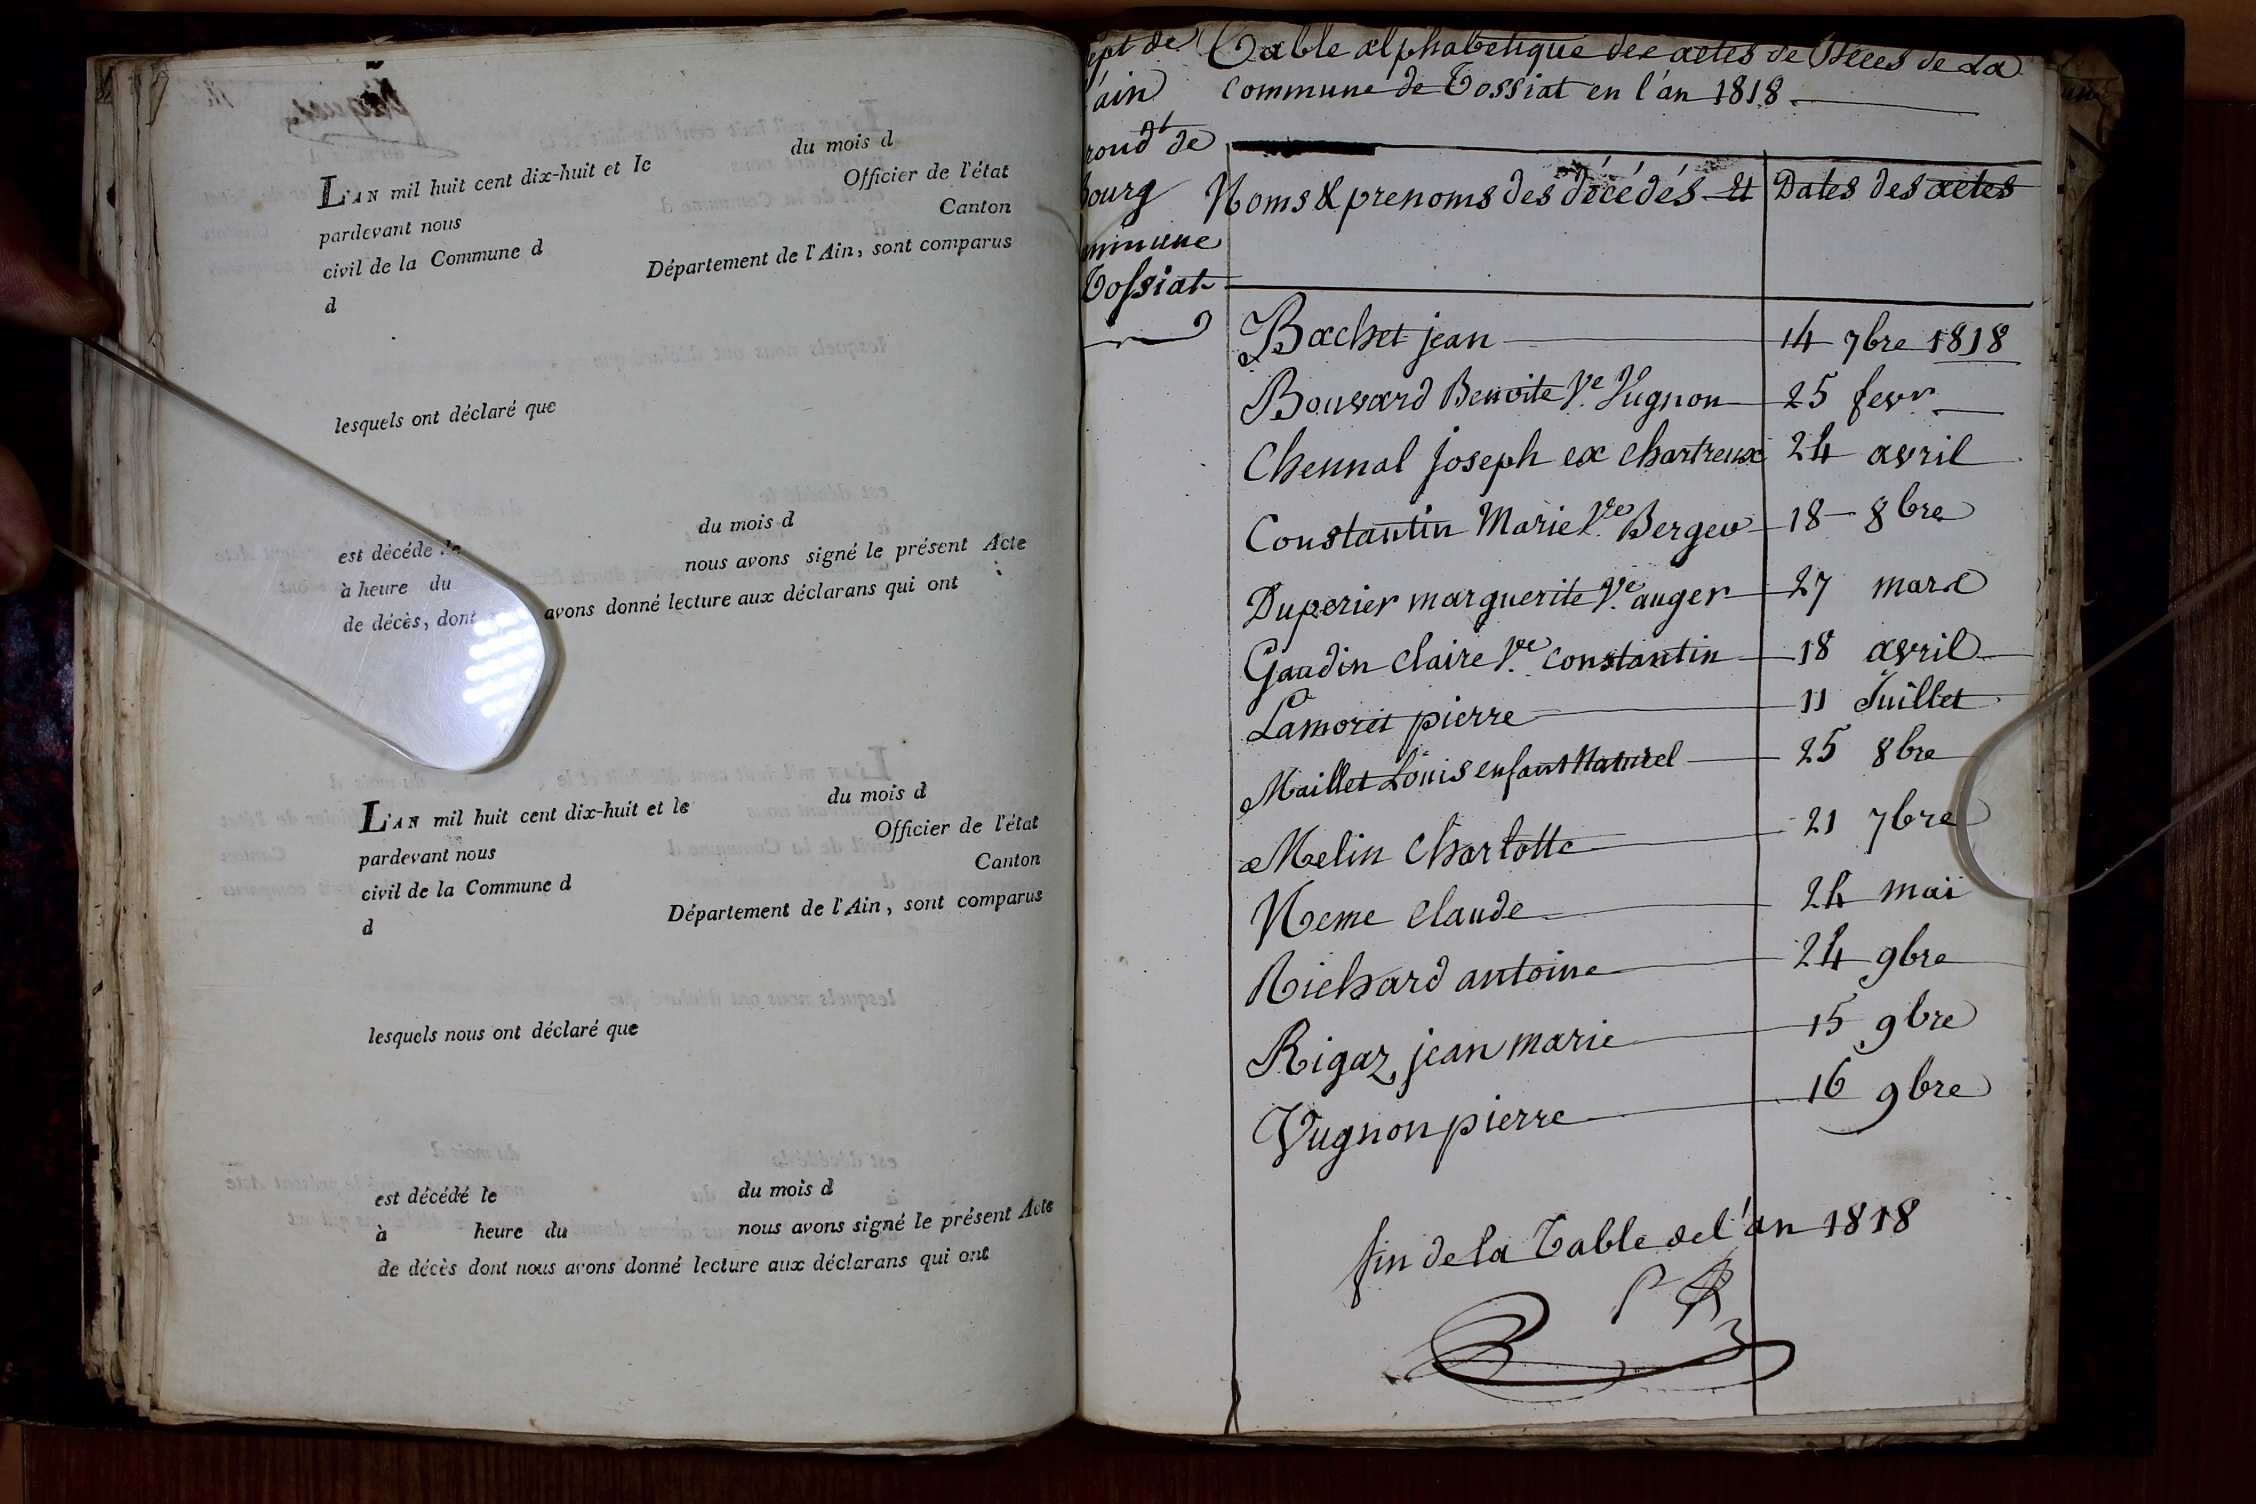 L'AN mil huit cent dix-huit et le du mois d
pardevant nous Officier de l'état
civil de la Commune d Canton
d Département de l'Ain, sont comparus
lesquels ont déclaré que
est décédé le du mois d
à heure du nous avons signé le présent Acte
de décès, dont avons donné lecture aux déclarans qui ont
L'AN mil huit cent dix-huit et le du mois d
pardevant nous Officier de l'état
civil de la Commune d Canton
d Département de l'Ain, sont comparus
lesquels nous ont déclaré que
est décédé le du mois d
à heure du nous avons signé le présent Acte
de décès dont nous avons donné lecture aux déclarans qui ont
ept de
ain
rond.t de
bourg
mmune
Tossiat
Table alphabetique des actes de Deces de La
Commune de Tossiat en l'an 1818.
Noms & prenoms des décédés et Dates des actes
Bachet jean 14 7bre 1818
Bouvard Benoite Ve. Vugnon 25 fevr
Chennal joseph ex chartreux 24 avril
Constantin Marie Ve. Berger 18 8bre
Duperier marguerite Ve. auger 27 mars
Gaudin Claire Ve. Constantin 18 avril
Lamoret pierre 11 Juillet
Maillet Louis enfant Naturel 25 8bre
Melin Charlotte 21 7bre
Neme Claude 24 mai
Richard antoine 24 9bre
Rigaz jean marie 15 9bre
Vugnon pierre 16 9bre
fin de la Table de l'an 1818